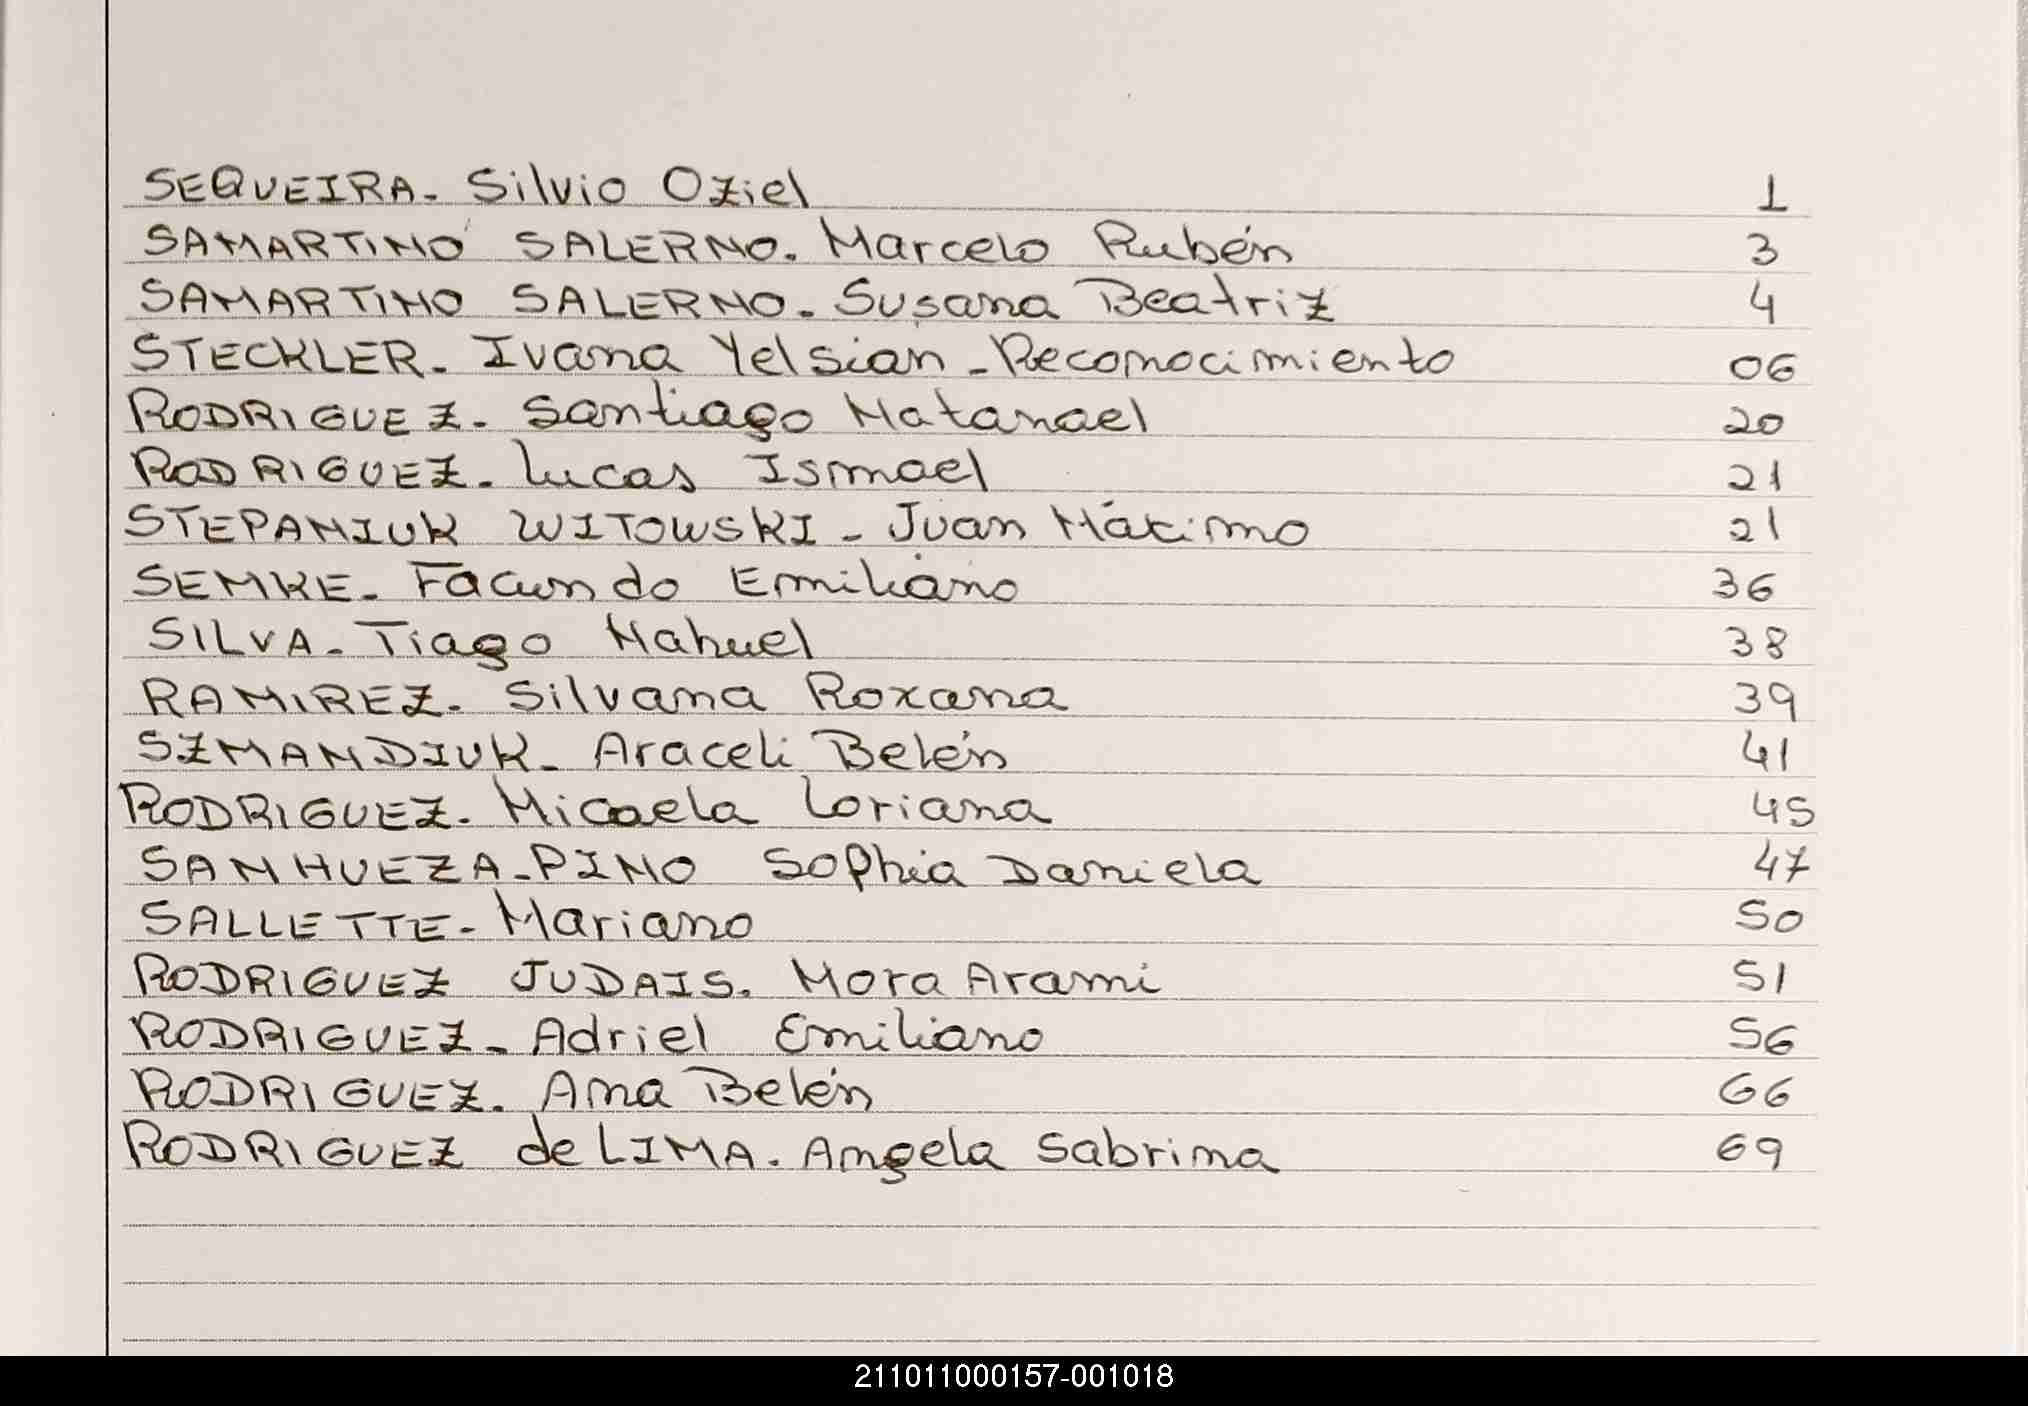 SEQUEIRA. Silvio Oziel 1
SAMARTINO SALERNO. Marcelo Rubén 3
SAMARTINO SALERNO. Susana Beatriz 4
STECKLER. Ivana Yelsian - Reconocimiento 06
RODRIGUEZ. Santiago Natanael 20
RODRIGUEZ. Lucas Ismael 21
STEPANIUK WITOWSKI - Juan Máximo 21
SEMKE. Facundo Emiliano 36
SILVA. Tiago Nahuel 38
RAMIREZ. Silvana Roxana 39
SZMANDIUK. Araceli Belén 41
RODRIGUEZ. Micaela Loriana 45
SANHUEZA-PINO Sophia Daniela 47
SALLETTE. Mariano 50
RODRIGUEZ JUDAIS. Mora Arami 51
RODRIGUEZ. Adriel Emiliano 56
RODRIGUEZ. Ana Belén 66
RODRIGUEZ de LIMA. Angela Sabrina 69
211011000157-001018